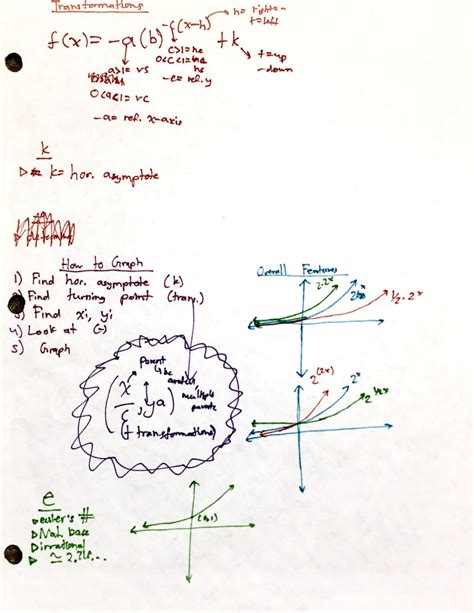 Transformations
h= right= -
+=left
f(x)= -a(b)^-c(x-h) +k
c>1=hc
0<c<1=
hs
-c= ref. y
+=up
-down
a>1= vs
0<a<1= vc
-a= ref. x-axis
k
k= hor. asymptote
How to Graph
1) Find hor. asymptote (k)
2) Find turning point (tran.)
3) Find xi, yi
4) Look at
5) Graph
parent
(x/c, ya)
multiple
(+ transformations)
Overall Features
2·2^x
1/2·2^x
2^(2x)
2^x
2^1/2x
e
euler's #
Nat. base
irrational
(0,1)